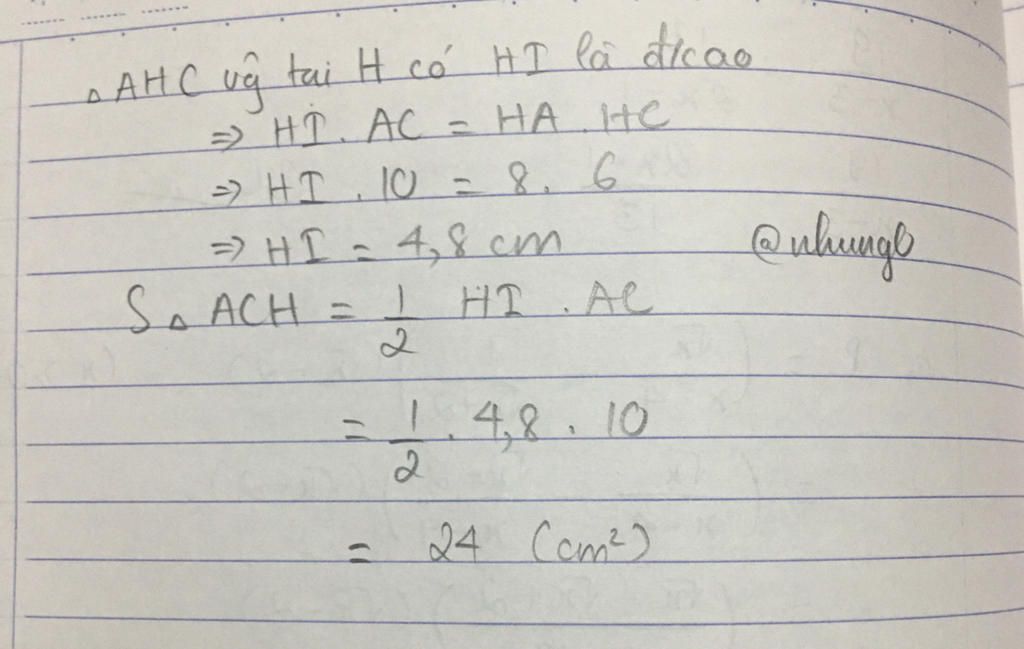 △AHC vg tại H có HI là đ/cao
⇒ HI . AC = HA . HC
⇒ HI . 10 = 8 . 6
⇒ HI = 4,8 cm
@nhungb
S△ACH = 1/2 HI . AC
= 1/2 . 4,8 . 10
= 24 (cm²)